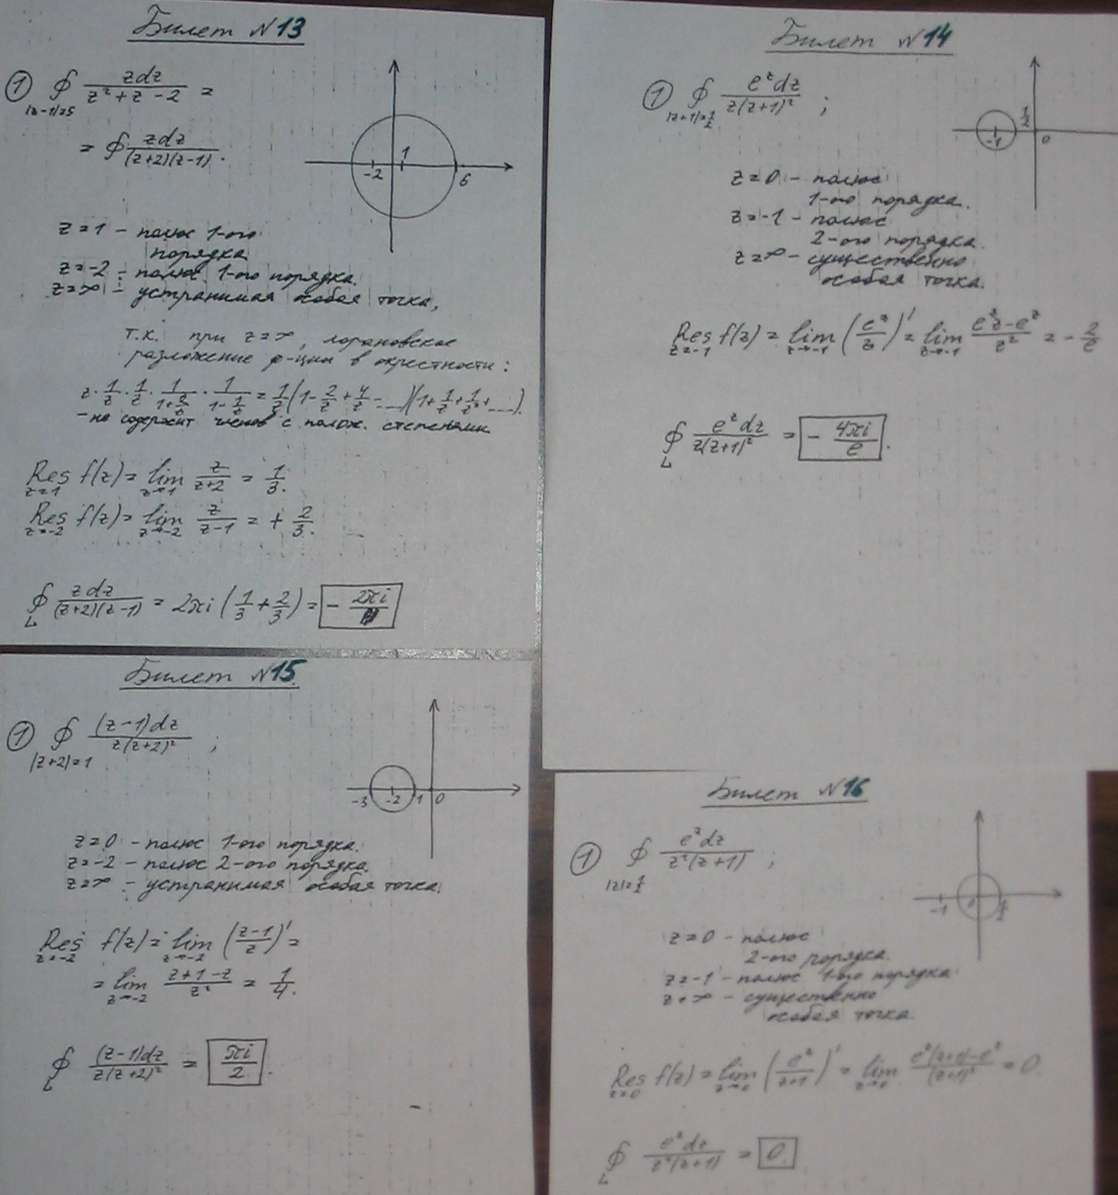 Билет №13
① ∮ zdz / (z² + z - 2) =
|z-1|=5
= ∮ zdz / ((z+2)(z-1)).
-2 1 6
z=1 - полюс 1-ого
порядка
z=-2 - полюс 1-ого порядка.
z=∞ - устранимая особая точка,
т.к. при z=∞, лорановское
разложение ф-ции в окрестности:
z · 1/z · 1/z · 1/(1+2/z) · 1/(1-1/z) = 1/z (1 - 2/z + 4/z - ...)(1 + 1/z + 1/z² + ...).
- не содержит членов с полож. степенями
Res f(z) = lim z/(z+2) = 1/3.
z=1 z→1
Res f(z) = lim z/(z-1) = + 2/3.
z=-2 z→-2
∮ zdz / ((z+2)(z-1)) = 2πi (1/3 + 2/3) = - 2πi
L
Билет №14
① ∮ e^z dz / (z(z+1)²) ;
|z+1|=1/2
-1 1/2 0
z=0 - полюс
1-ого порядка.
z=-1 - полюс
2-ого порядка.
z=∞ - существенно
особая точка.
Res f(z) = lim (e^z/z)' = lim (e^z z - e^z)/z² = - 2/e
z=-1 z→-1 z→-1
∮ e^z dz / (z(z+1)²) = - 4πi/e.
L
Билет №15
① ∮ (z-1)dz / (z(z+2)²) ;
|z+2|=1
-3 -2 -1 0
z=0 - полюс 1-ого порядка.
z=-2 - полюс 2-ого порядка.
z=∞ - устранимая особая точка.
Res f(z) = lim ((z-1)/z)' =
z=-2 z→-2
= lim (z+1-z)/z² = 1/4.
z→-2
∮ (z-1)dz / (z(z+2)²) = πi/2.
L
Билет №16
① ∮ e^z dz / (z²(z+1)) ;
|z|=1/2
-1 0 1/2
z=0 - полюс
2-ого порядка.
z=-1 - полюс 1-ого порядка
z=∞ - существенно
особая точка.
Res f(z) = lim (e^z/(z+1))' = lim (e^z(z+1)-e^z)/(z+1)² = 0.
z=0 z→0 z→0
∮ e^z dz / (z²(z+1)) = 0.
L